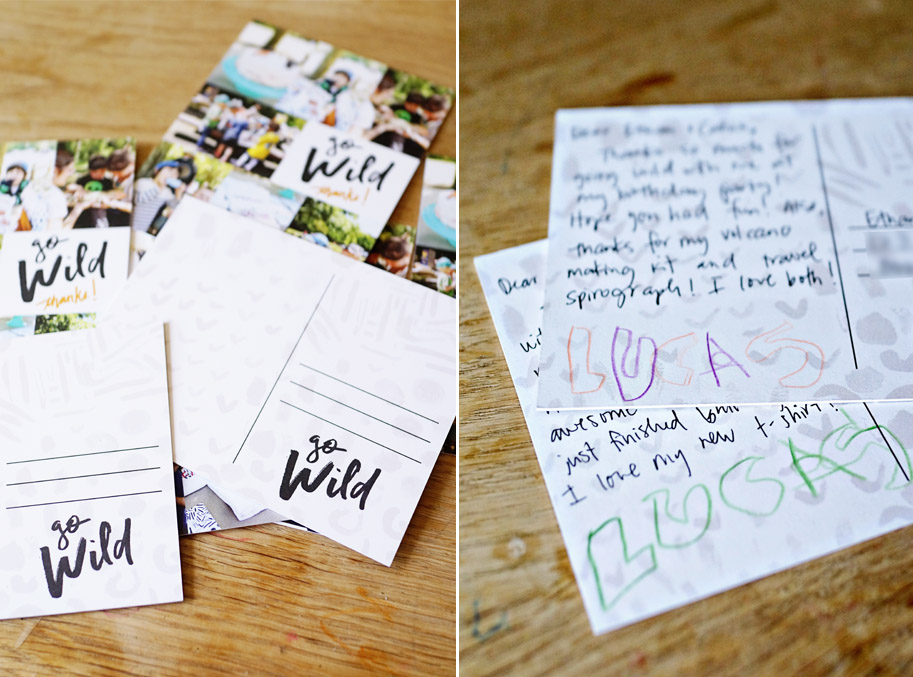 go
Wild
thanks!
go
Wild
thanks!
go
Wild
go
Wild
Dear
Thanks so much for
going wild with me at
my birthday party!
Hope you had fun! Also,
thanks for my volcano
making kit and travel
spirograph! I love both!
LUCAS
Ethan
Dear
awesome
just finished
I love my new t-shirt!
LUCAS